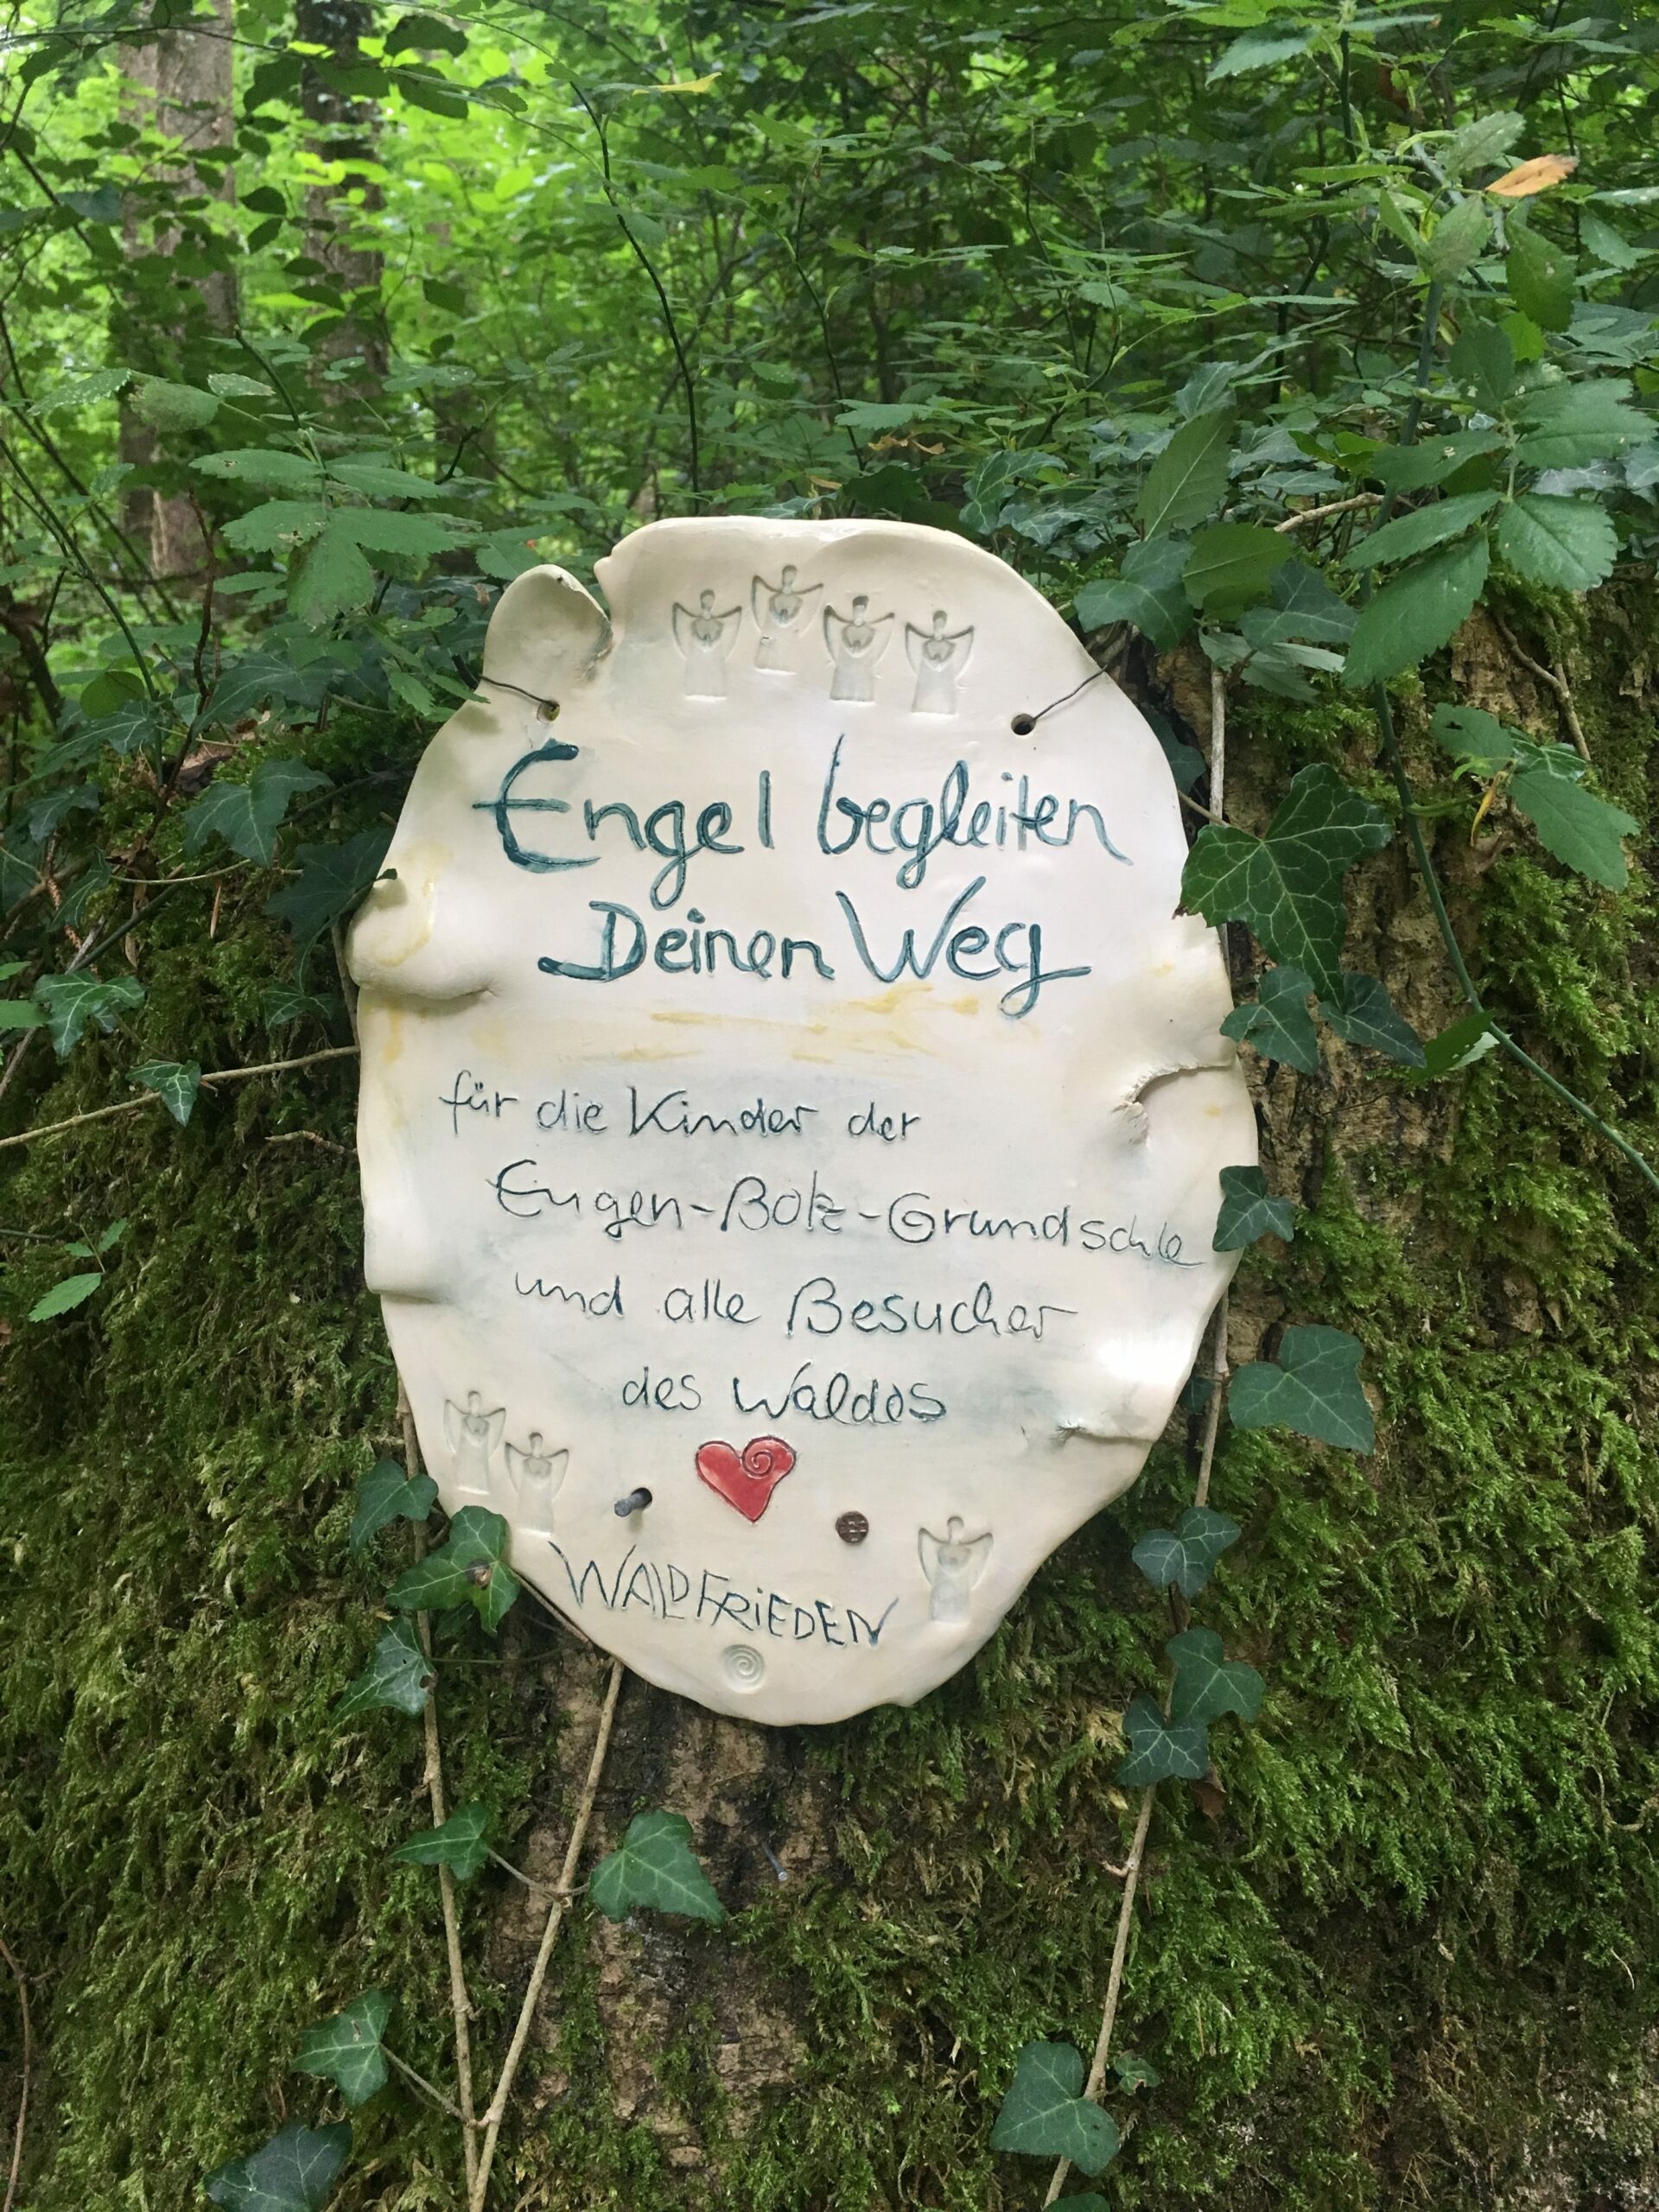 Engel begleiten
Deinen Weg
für die Kinder der
Eugen-Bolz-Grundschle
und alle Besucher
des Waldes
WALDFRiEDEN